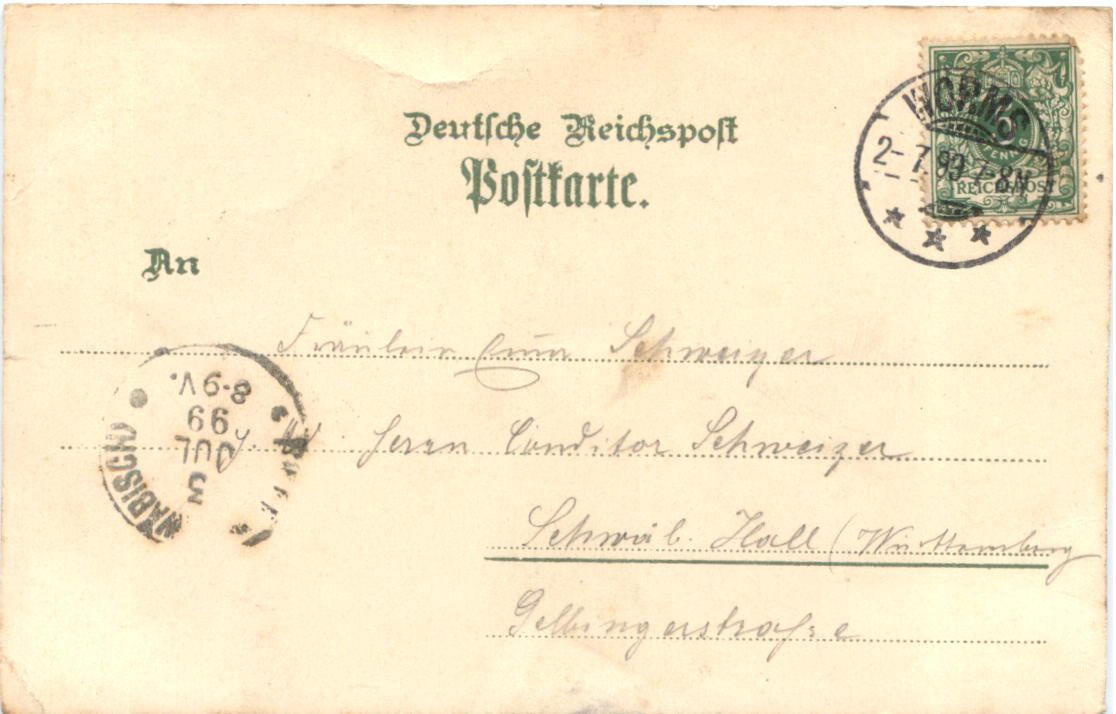 Deutsche Reichspost
Postkarte.
WORMS
2-7.99 7-8N
REICHSPOST
An
Fräulein Schweizer
Herrn Conditor Schweizer
Schwäb. Hall (Württemberg
Gelbingerstraße
8-9 V.
99
JUL
3